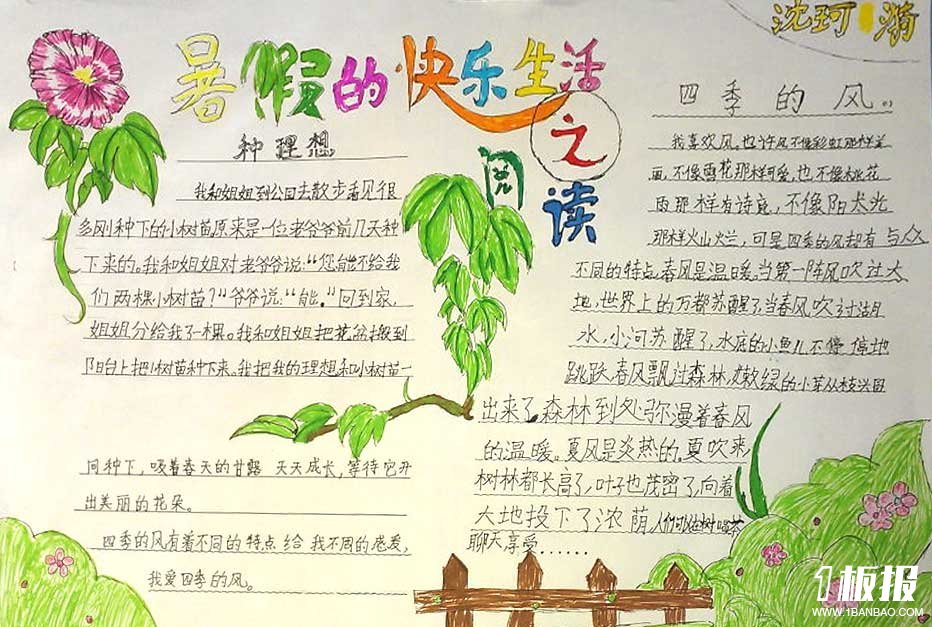 沈珂 漪
暑假的快乐生活
之
阅
读
种理想
我和姐姐到公园去散步看见很
多刚种下的小树苗原来是一位老爷爷前几天种
下来的。我和姐姐对老爷爷说:“您能不给我
们两棵小树苗?”爷爷说:“能。”回到家,
姐姐分给我了一棵。我和姐姐把花盆搬到
阳台上把小树苗种下来。我把我的理想和小树苗一
同种下,吸着春天的甘露 天天成长,等待它开
出美丽的花朵。
四季的风有着不同的特点 给 我不同的感受,
我爱四季的风。
四季的风。
我喜欢风。也许风不像彩虹那样美
丽,不像雪花那样可爱,也不像桃花
雨那样有诗意,不像阳光
那样火山灿兰,可是四季的风却有与众
不同的特点。春风是温暖,当第一阵风吹过大
地,世界上的万都苏醒了,当春风吹过湖
水,小河苏醒了,水底的小鱼儿不停 停地
跳跃,春风飘过森林,嫩绿的小芽从枝
出来了。森林到处弥漫着春风
的温暖。夏风是炎热的。夏吹来,
树林都长高了,叶子也茂密了,向着
大地投下了浓荫,人们可以在树喝茶
聊天享受……
1板报
WWW.1BANBAO.COM